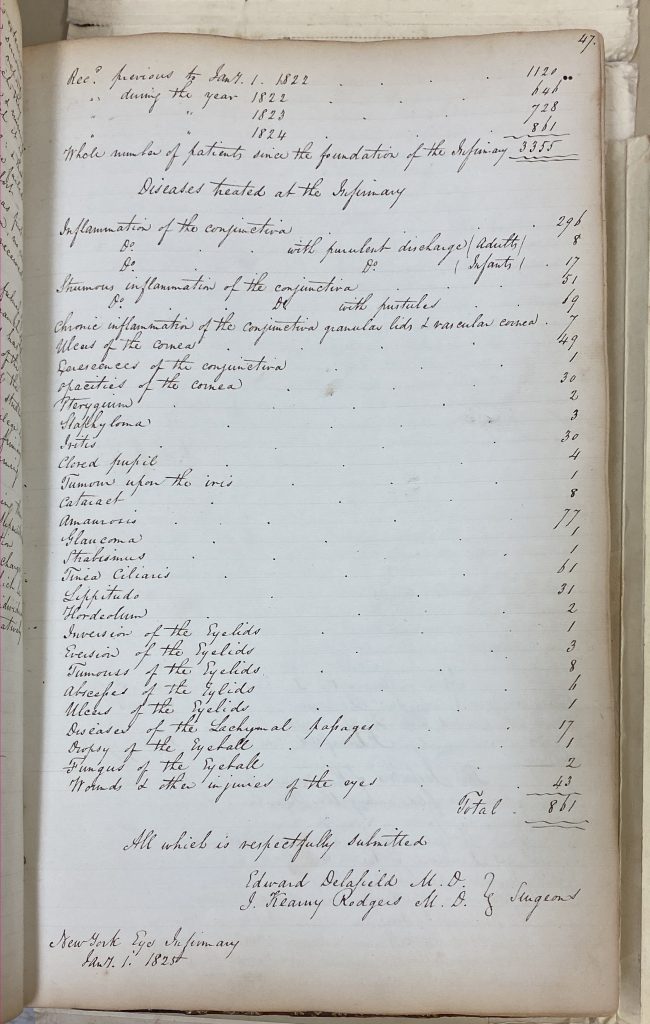 47.
Recd. previous to Jany. 1. 1822 . . . 1120
" during the year 1822 . . . 646
" " 1823 728
" 1824 861
Whole number of patients since the foundation of the Infirmary 3355
Diseases treated at the Infirmary
Inflammation of the conjunctiva . . . 296
Do. . . with purulent discharge (Adults) 8
Do. . . Do. (Infants) . 17
Strumous inflammation of the conjunctiva . . . 51
Do. Do. with pustules . . 69
Chronic inflammation of the conjunctiva granular lids & vascular cornea . 7
Ulcers of the cornea . . . 49
Excrescences of the conjunctiva . . . 1
Opacities of the cornea . . . 30
Pterygium . . . . 2
Staphyloma . . . 3
Iritis . . . . 30
Closed pupil . . . 4
Tumour upon the iris . . . 1
Cataract . . . 8
Amaurosis . . . . 77
Glaucoma . . . 1
Strabismus . . . 1
Tinea Ciliaris . . . 61
Lippitudo . . . 31
Hordeolum . . . 2
Inversion of the Eyelids . . 1
Eversion of the Eyelids . . . 3
Tumours of the Eyelids . . . 8
Abscesses of the Eylids . . . 6
Ulcers of the Eyelids . . . 1
Diseases of the Lachymal passages . . 17
Dropsy of the Eyeball . . . 1
Fungus of the Eyeball . . . 2
Wounds & other injuries of the eyes . . 43
Total . 861
All which is respectfully submitted
Edward Delafield M. D. } Surgeons
J. Kearny Rodgers M. D.
New York Eye Infirmary
Jany. 1. 1825